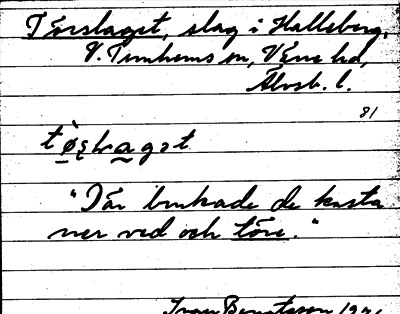 Törslaget, slag i Halleberg,
V. Tunhems sn, Väne hd,
Älvsb. l.
81
"Där brukade de kasta
ner ved och töre."
Ivar Bengtsson